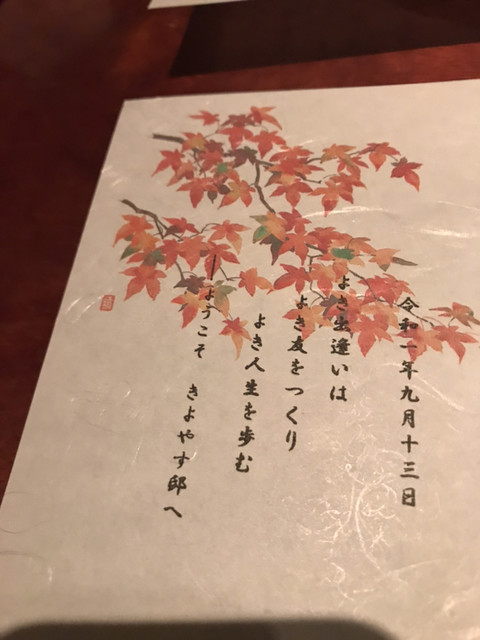 令和一年九月十三日
よき出逢いは
よき友をつくり
よき人生を歩む
ーようこそ きよやす邸へ